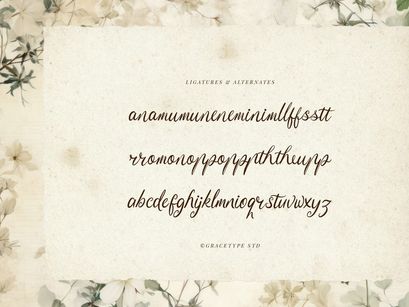 LIGATURES & ALTERNATES
anamumuneneminimllffsstt
rromonoppopppththeupp
abcdefghijklmnioqrstuvwxyz
©GRACETYPE STD